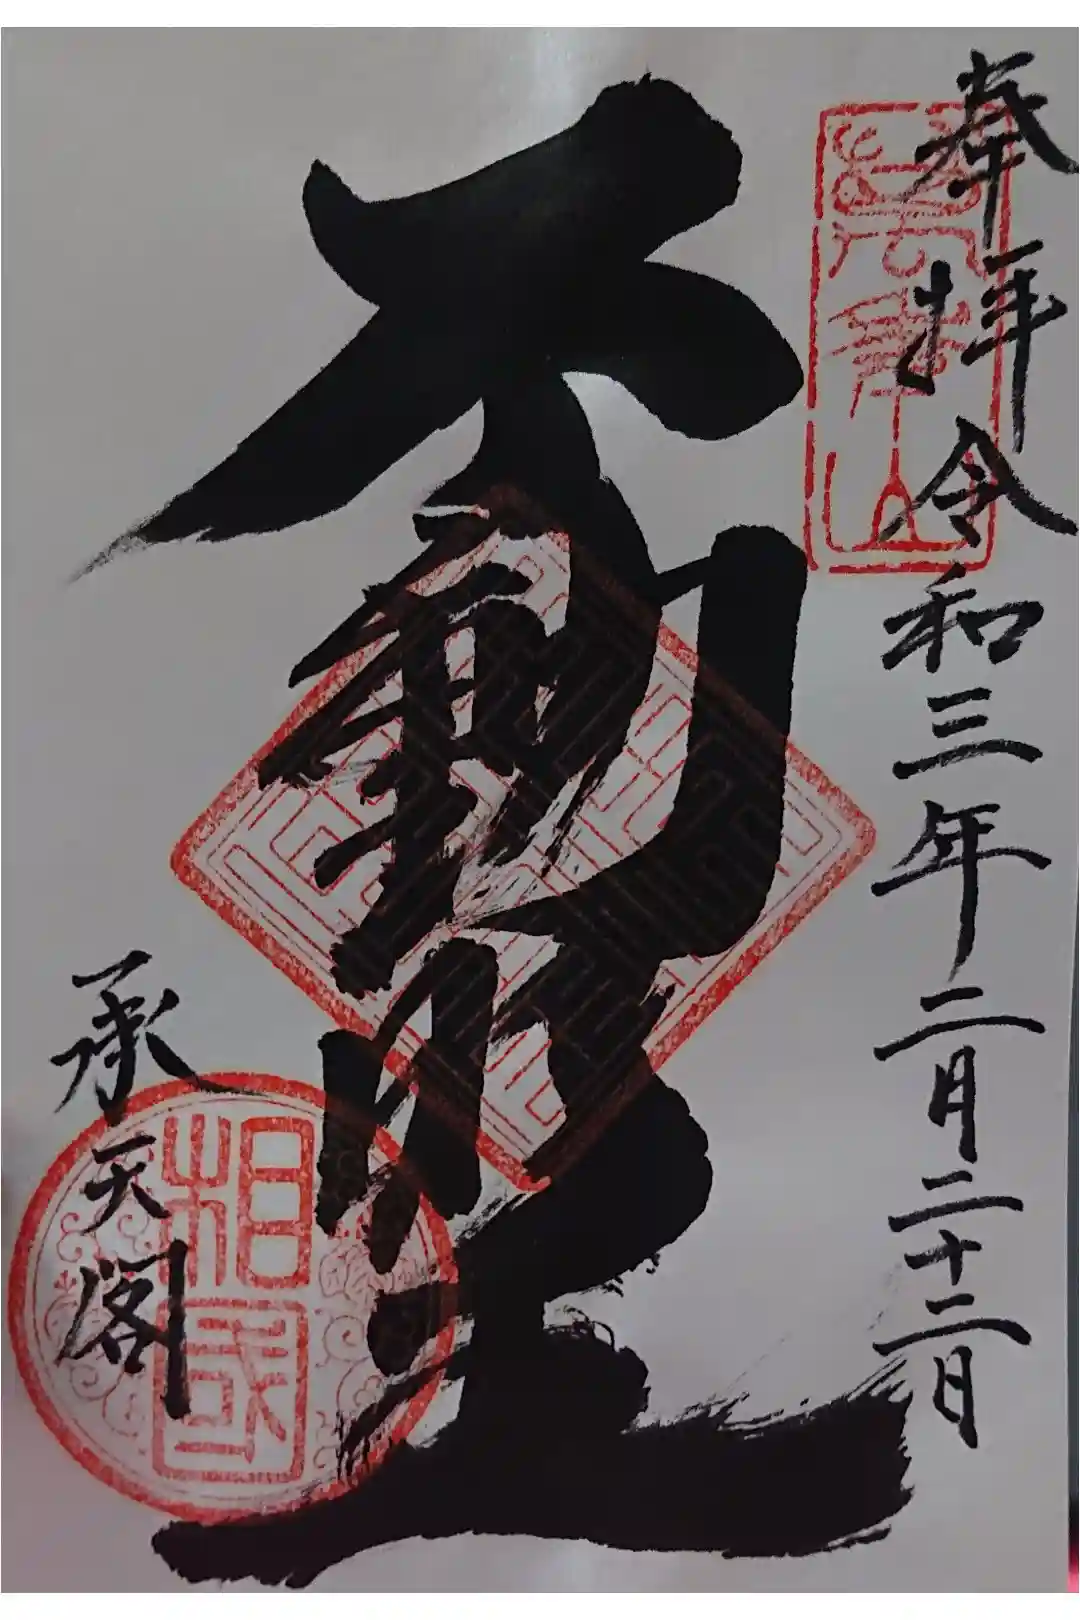 奉拝 令和三年二月二十二日
萬年山
不動
承天閣
相國